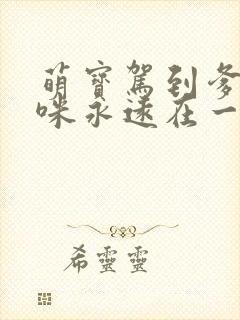 萌寶駕到爹
咪永遠在一
希靈靈